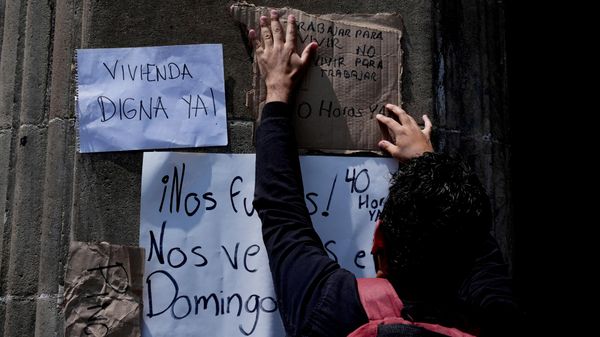 VIVIENDA
DIGNA YA!
TRABAJAR PARA
VIVIR NO
VIVIR PARA
TRABAJAR
0 Horas YA
¡Nos fu s!
40
Hor
YA
Nos ve e
Domingo